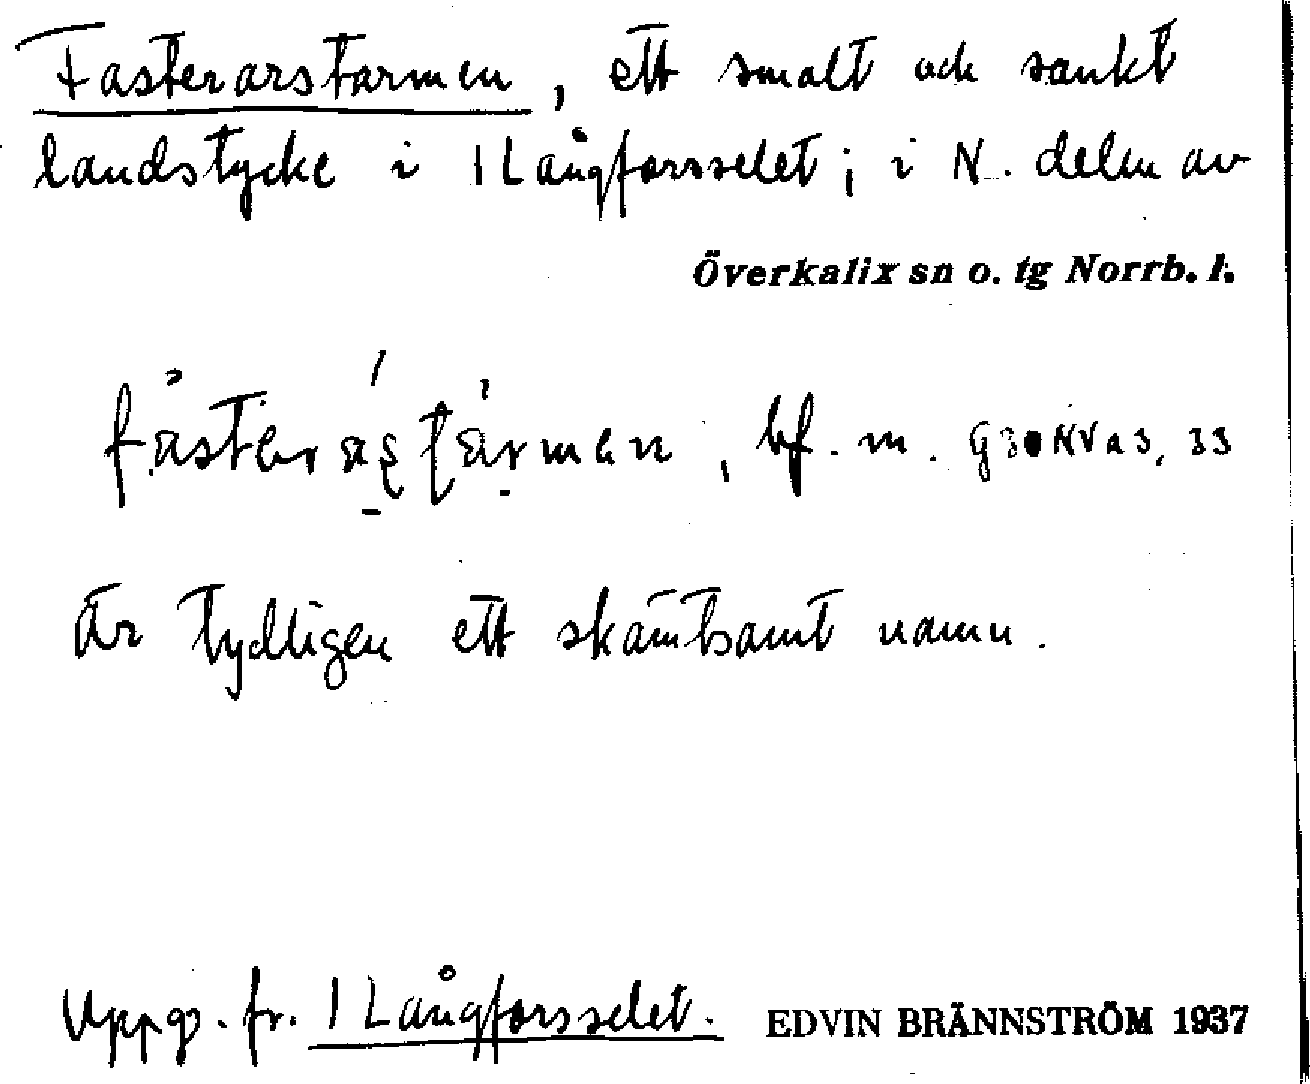 Fasterarstarmen, ett smalt och sankt
landstycke i 1 Långforsselet; i N. delen av
Överkalix sn o. tg Norrb. l.
bf. m.
Är tydligen ett skämtsamt namn.
Uppg. fr. 1 Långforsselet. EDVIN BRÄNNSTRÖM 1937